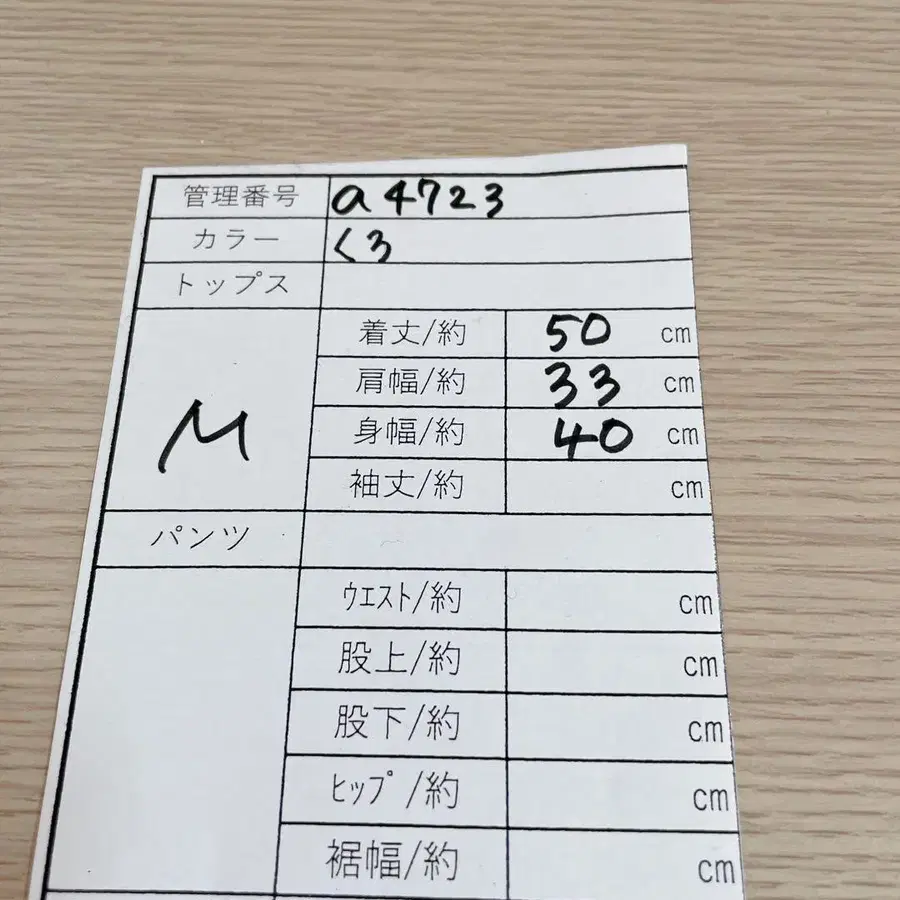 管理番号 a4723
カラー くろ
トップス
M
着丈/約 50 cm
肩幅/約 33 cm
身幅/約 40 cm
袖丈/約 cm
パンツ
ｳｴｽﾄ/約 cm
股上/約 cm
股下/約 cm
ﾋｯﾌﾟ/約 cm
裾幅/約 cm